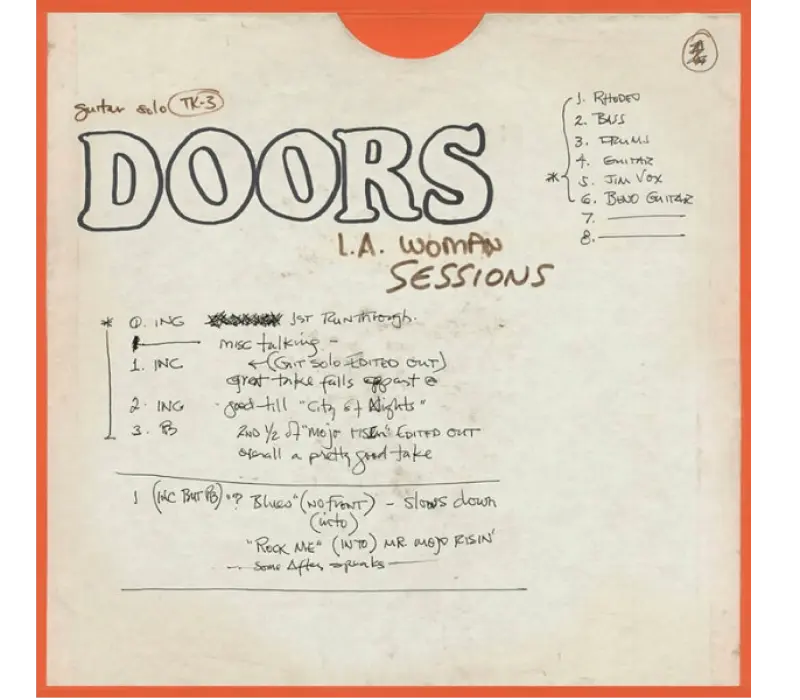 guitar solo TK-3
DOORS
L.A. WOMAN
SESSIONS
* 1. RHODEO
2. BASS
3. DRUMS
4. GUITAR
5. JIM VOX
6. BEND GUITAR
7.
8.
* 0. INC 1ST RUNTHROUGH.
misc talking -
1. INC ←(GIT SOLO EDITED OUT)
great take falls appart @
2. INC - good till "City of Nights"
3. PB 2ND 1/2 of "Mojo RISEN" EDITED OUT
overall a pretty good take
1 (INC BUT PB) "? Blues" (NO FRONT) - slows down
(into)
"ROCK ME" (INTO) MR MOJO RISIN'
-- Some After speaks --